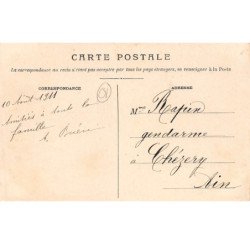 CARTE POSTALE
La correspondance au recto n'est pas acceptée par tous les pays étrangers, se renseigner à la Poste
CORRESPONDANCE
ADRESSE
10 Août 1911
Amitiés à toute la
famille
Rapin
gendarme
à Chézery
Ain